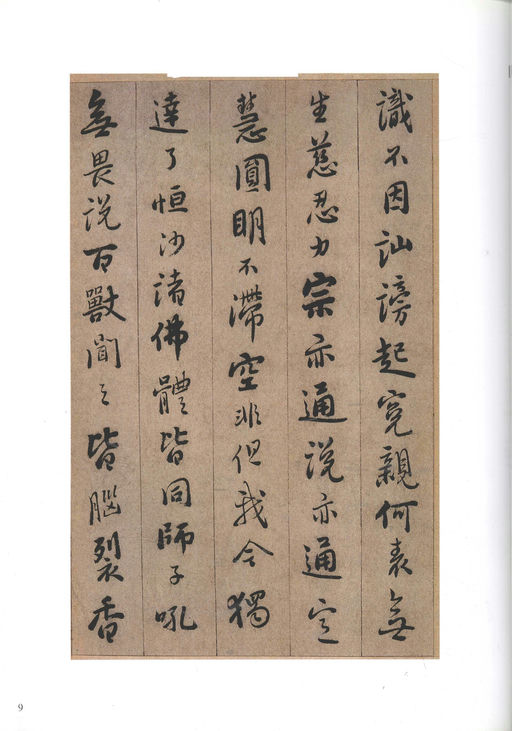 識不因訕謗起寃親何表無
生慈忍力宗亦通説亦通定
慧圓明不滯空非但我今獨
達了恒沙諸佛體皆同師子吼
無畏説百獸聞之皆腦裂香
9